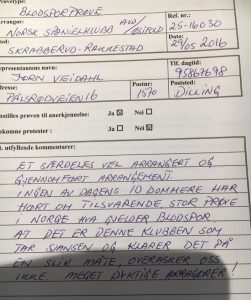 Prøvetype:
BLODSPORPRØVE
Arrangør: Ref. nr.:
NORSK SPANIELKLUBB AVD/ØSTFOLD 25-16030
Sted: Dato:
SKRABBERUD-RAKKESTAD 29/05 2016
Representantens navn: Tlf. dagtid:
JØRN VEIDAHL 95867698
Adresse: Postnr: Poststed:
PÅLSRØDVEIEN 16 1570 DILLING
Innstilles prøven til anerkjennelse: Ja ☒ Nei ☐
Innkomne protester: Ja ☐ Nei ☒
Evt. utfyllende kommentarer:
ET SÆRDELES VEL ARRANGERT OG
GJENNOMFØRT ARRANGEMENT.
INGEN AV DAGENS 10 DOMMERE HAR
HØRT OM TILSVARENDE, STOR PRØVE
I NORGE HVA GJELDER BLODSPOR.
AT DET ER DENNE KLUBBEN SOM
TAR SJANSEN OG KLARER DET PÅ
EN SLIK MÅTE, OVERASKER OSS
IKKE. MEGET DYKTIGE ARRANGØRER!